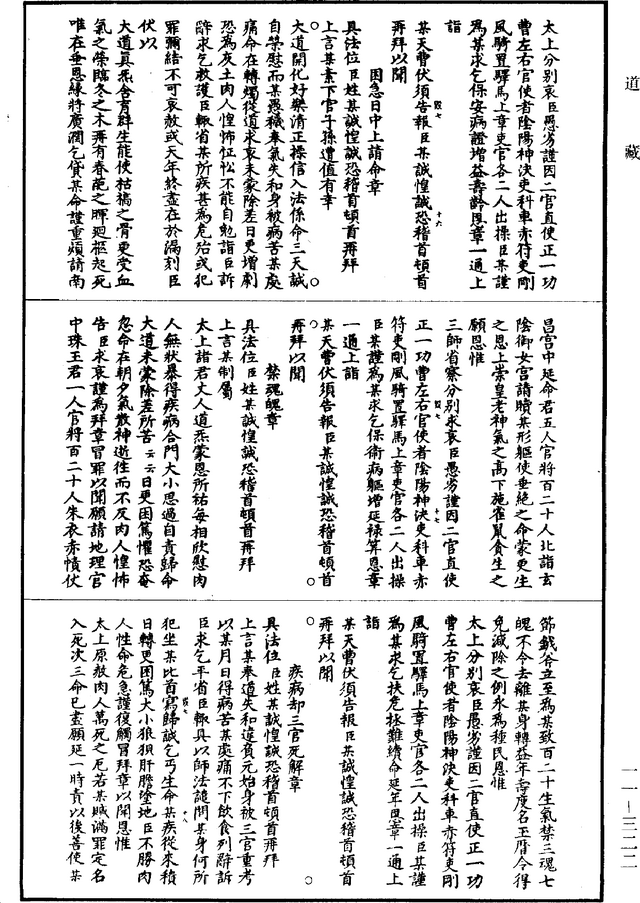 道藏
太上分別哀臣愚劣謹因二官直使正一功
曹左右官使者陰陽神決吏科車赤符吏剛
風騎置驛馬上章吏官各二人出操臣某謹
為某求乞保安病證增益壽齡恩章一通上
詣
某天曹伏須告報臣某誠惶誠恐稽首頓首
再拜以聞
困急日中上請命章
具法位臣姓某誠惶誠恐稽首頓首再拜
上言某素下官子孫遭值有幸
大道開化好樂清正操信入法係命三天誠
自榮慰而某愚穢奉氣失和身被病苦某處
痛命在轉燭從道求哀未蒙除差日更增劇
恐為灰土肉人惶怖怔忪不能自勉詣臣訴
辭求乞救護臣輒省某所疾甚為危殆或犯
罪彌結不可哀赦或天年終盡在於漏刻臣
伏以
大道真炁含育群生能使枯槁之骨更受血
氣之榮臨冬之木再有春葩之暉迴柩起死
唯在垂恩緣將廣濶乞貸某命謹重煩請南
昌宮中延命君五人官將百二十人北詣玄
陰御女宮請贖某形軀使垂絕之命蒙更生
之恩上崇皇老神氣之高下施雀鼠貪生之
願恩惟
三師省察分別求哀臣愚劣謹因二官直使
正一功曹左右官使者陰陽神決吏科車赤
符吏剛風騎置驛馬上章吏官各二人出操
臣某謹為某求乞保衛病軀增延祿算恩章
一通上詣
某天曹伏須告報臣某誠惶誠恐稽首頓首
再拜以聞
禁魂魄章
具法位臣姓某誠惶誠恐稽首頓首再拜
上言某制屬
太上諸君丈人道炁蒙恩所祐每相欣慰肉
人無狀暴得疾病合門大小思過自責歸命
大道未蒙除差所苦云云日更困篤懼恐奄
忽命在朝夕氣散神逝往而不反肉人惶怖
告臣求哀謹為拜章冒罪以聞願請地理官
中珠玉君一人官將百二十人朱衣赤幘伏
節鉞各立至為某致百二十生氣禁三魂七
魄不令去離某身轉益年壽度名玉曆令得
免滅除之例永為種民恩惟
太上分別哀臣愚劣謹因二官直使正一功
曹左右官使者陰陽神決吏科車赤符吏剛
風騎置驛馬上章吏官各二人出操臣某謹
為某求乞扶危拯難續命延年恩章一通上
詣
某天曹伏須告報臣某誠惶誠恐稽首頓首
再拜以聞
疾病却三官死解章
具法位臣姓某誠惶誠恐稽首頓首再拜
上言某奉道失和違負元始身被三官重考
以某月日得病苦某處痛不下飲食列辭訴
臣求乞平省臣輒具以師法譴問某身何所
犯坐某比首寫歸誠乞丐生命某疾從來積
日轉更困篤大小狼狽肝膽塗地臣不勝肉
人性命危急謹復觸冒拜章以聞恩惟
太上原赦肉人萬死之厄若某贓滿罪定名
入死次三命已盡願延一時責以後善使某
一一—三二二